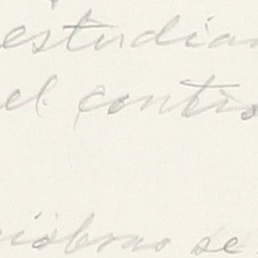 estudian
el contro
iobras se